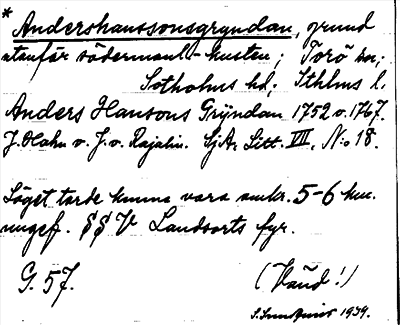 * Andershanssonsgryndan, grund
utanför södermanl-kusten; Torö sn;
Sotholms hd; Sthlms l.
Anders Hansons Gryndan 1752 v. 1747.
J. Hahn v. J. v. Rajalin. SjA. Litt. VIII. No 18.
Läget torde kunna vara omkr. 5-6 km.
ungef. SSV Landsorts fyr.
G. 57.
1939.